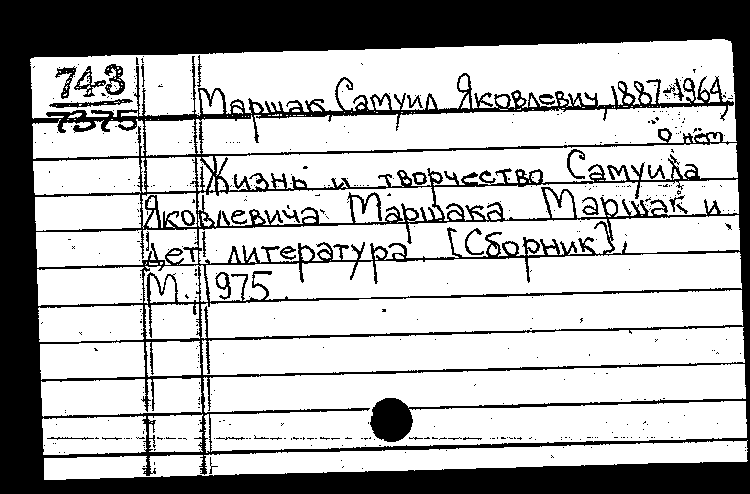 74-3
7375
Маршак, Самуил Яковлевич, 1887-1964,
о нём.
Жизнь и творчество Самуила
Яковлевича Маршака. Маршак и
дет. литература. [Сборник],
М., 1975.